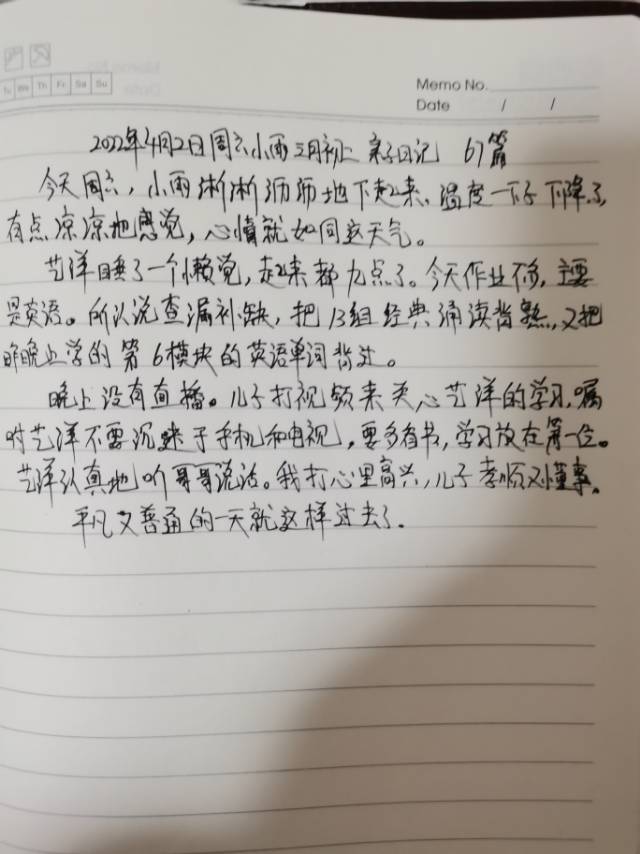 Memo No.
Tu We Th Fr Sa Su
Date / /
2022年4月2日周六小雨三月初二 亲子日记 67篇
今天周六，小雨淅淅沥沥地下起来、温度一下子下降了，
有点凉凉把感觉，心情就如同这天气。
艺洋睡了一个懒觉，起来都九点了。今天作业不多，主要
是英语。所以说查漏补缺，把13组经典诵读背熟，又把
昨晚上学的第6模块的英语单词背过。
晚上没有直播。儿子打视频来关心艺洋的学习，嘱
咐艺洋不要沉迷于手机和电视，要多看书，学习放在第一位。
艺洋认真地听哥哥说话。我打心里高兴，儿子孝顺又懂事。
平凡又普通的一天就这样过去了.